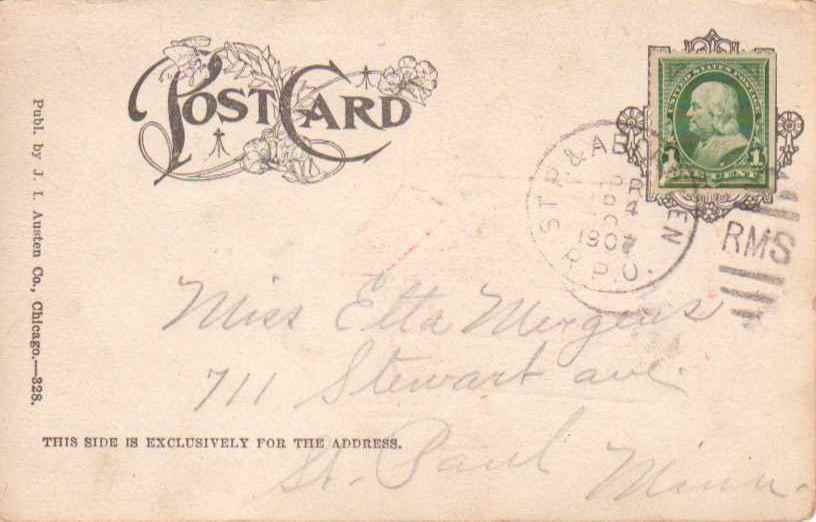 POST CARD
UNITED STATES POSTAGE
1 ONE CENT 1
ST. P. & ABERDEEN
APR
4
1907
R.P.O.
RMS
Publ. by J. I. Austen Co., Chicago.—328.
Miss Etta Mergens
711 Stewart ave.
THIS SIDE IS EXCLUSIVELY FOR THE ADDRESS.
St. Paul Minn.